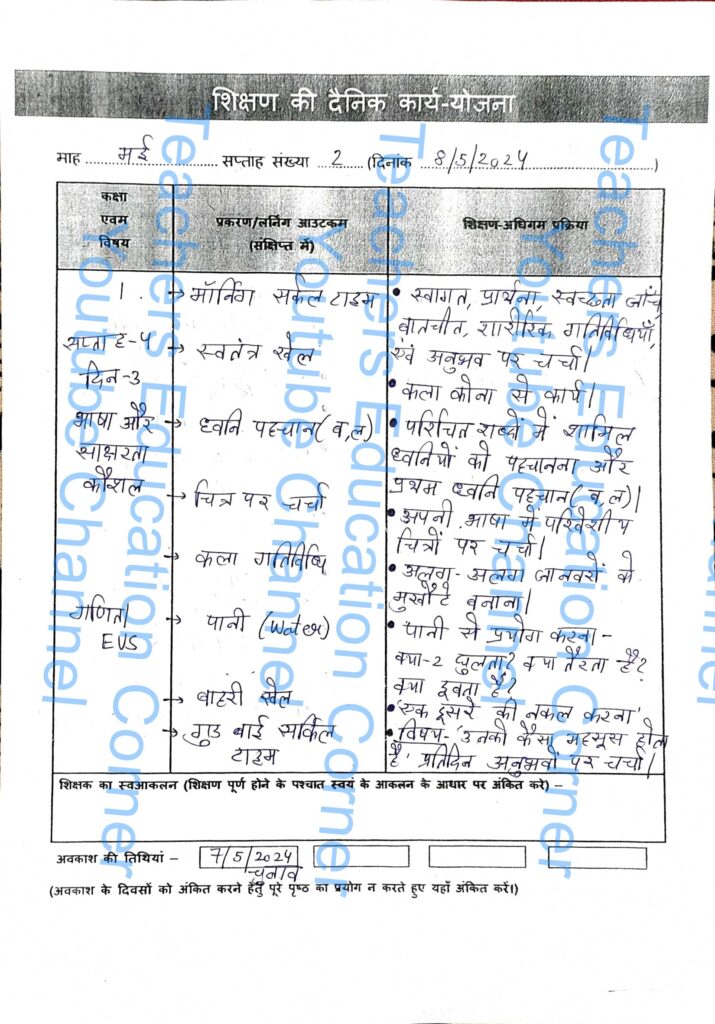 शिक्षण की दैनिक कार्य-योजना
माह मई सप्ताह संख्या 2 (दिनांक 8/5/2024)
कक्षा एवम विषय
प्रकरण/लर्निंग आउटकम (संक्षिप्त में)
शिक्षण-अधिगम प्रक्रिया
1.
सप्ताह-4
दिन-3
भाषा और
साक्षरता
कौशल
गणित/
EVS
→ मॉर्निंग सर्कल टाइम
→ स्वतंत्र खेल
→ ध्वनि पहचान (व,ल)
→ चित्र पर चर्चा
→ कला गतिविधि
→ पानी (Water)
→ बाहरी खेल
→ गुड बाई सर्किल
टाइम
• स्वागत, प्रार्थना, स्वच्छता जाँच,
बातचीत, शारीरिक गतिविधियाँ,
एवं अनुभव पर चर्चा।
• कला कोना से कार्य।
• परिचित शब्दों में शामिल
ध्वनियों को पहचानना और
प्रथम ध्वनि पहचान (व,ल)।
• अपनी भाषा में परिवेशीय
चित्रों पर चर्चा।
• अलग-अलग जानवरों के
मुखौटे बनाना।
• पानी से प्रयोग करना -
क्या-2 घुलता? क्या तैरता है?
क्या डूबता है?
• 'एक दूसरे की नकल करना'
• विषय- 'उनको कैसा महसूस होता
है' प्रतिदिन अनुभवों पर चर्चा।
शिक्षक का स्वआकलन (शिक्षण पूर्ण होने के पश्चात स्वयं के आकलन के आधार पर अंकित करे) –
अवकाश की तिथियां – 7/5/2024
चुनाव
(अवकाश के दिवसों को अंकित करने हेतु पूरे पृष्ठ का प्रयोग न करते हुए यहाँ अंकित करें।)
Teachers Education Corner
Youtube Channel
Teachers Education Corner
Youtube Channel
Teachers Education Corner
Youtube Channel